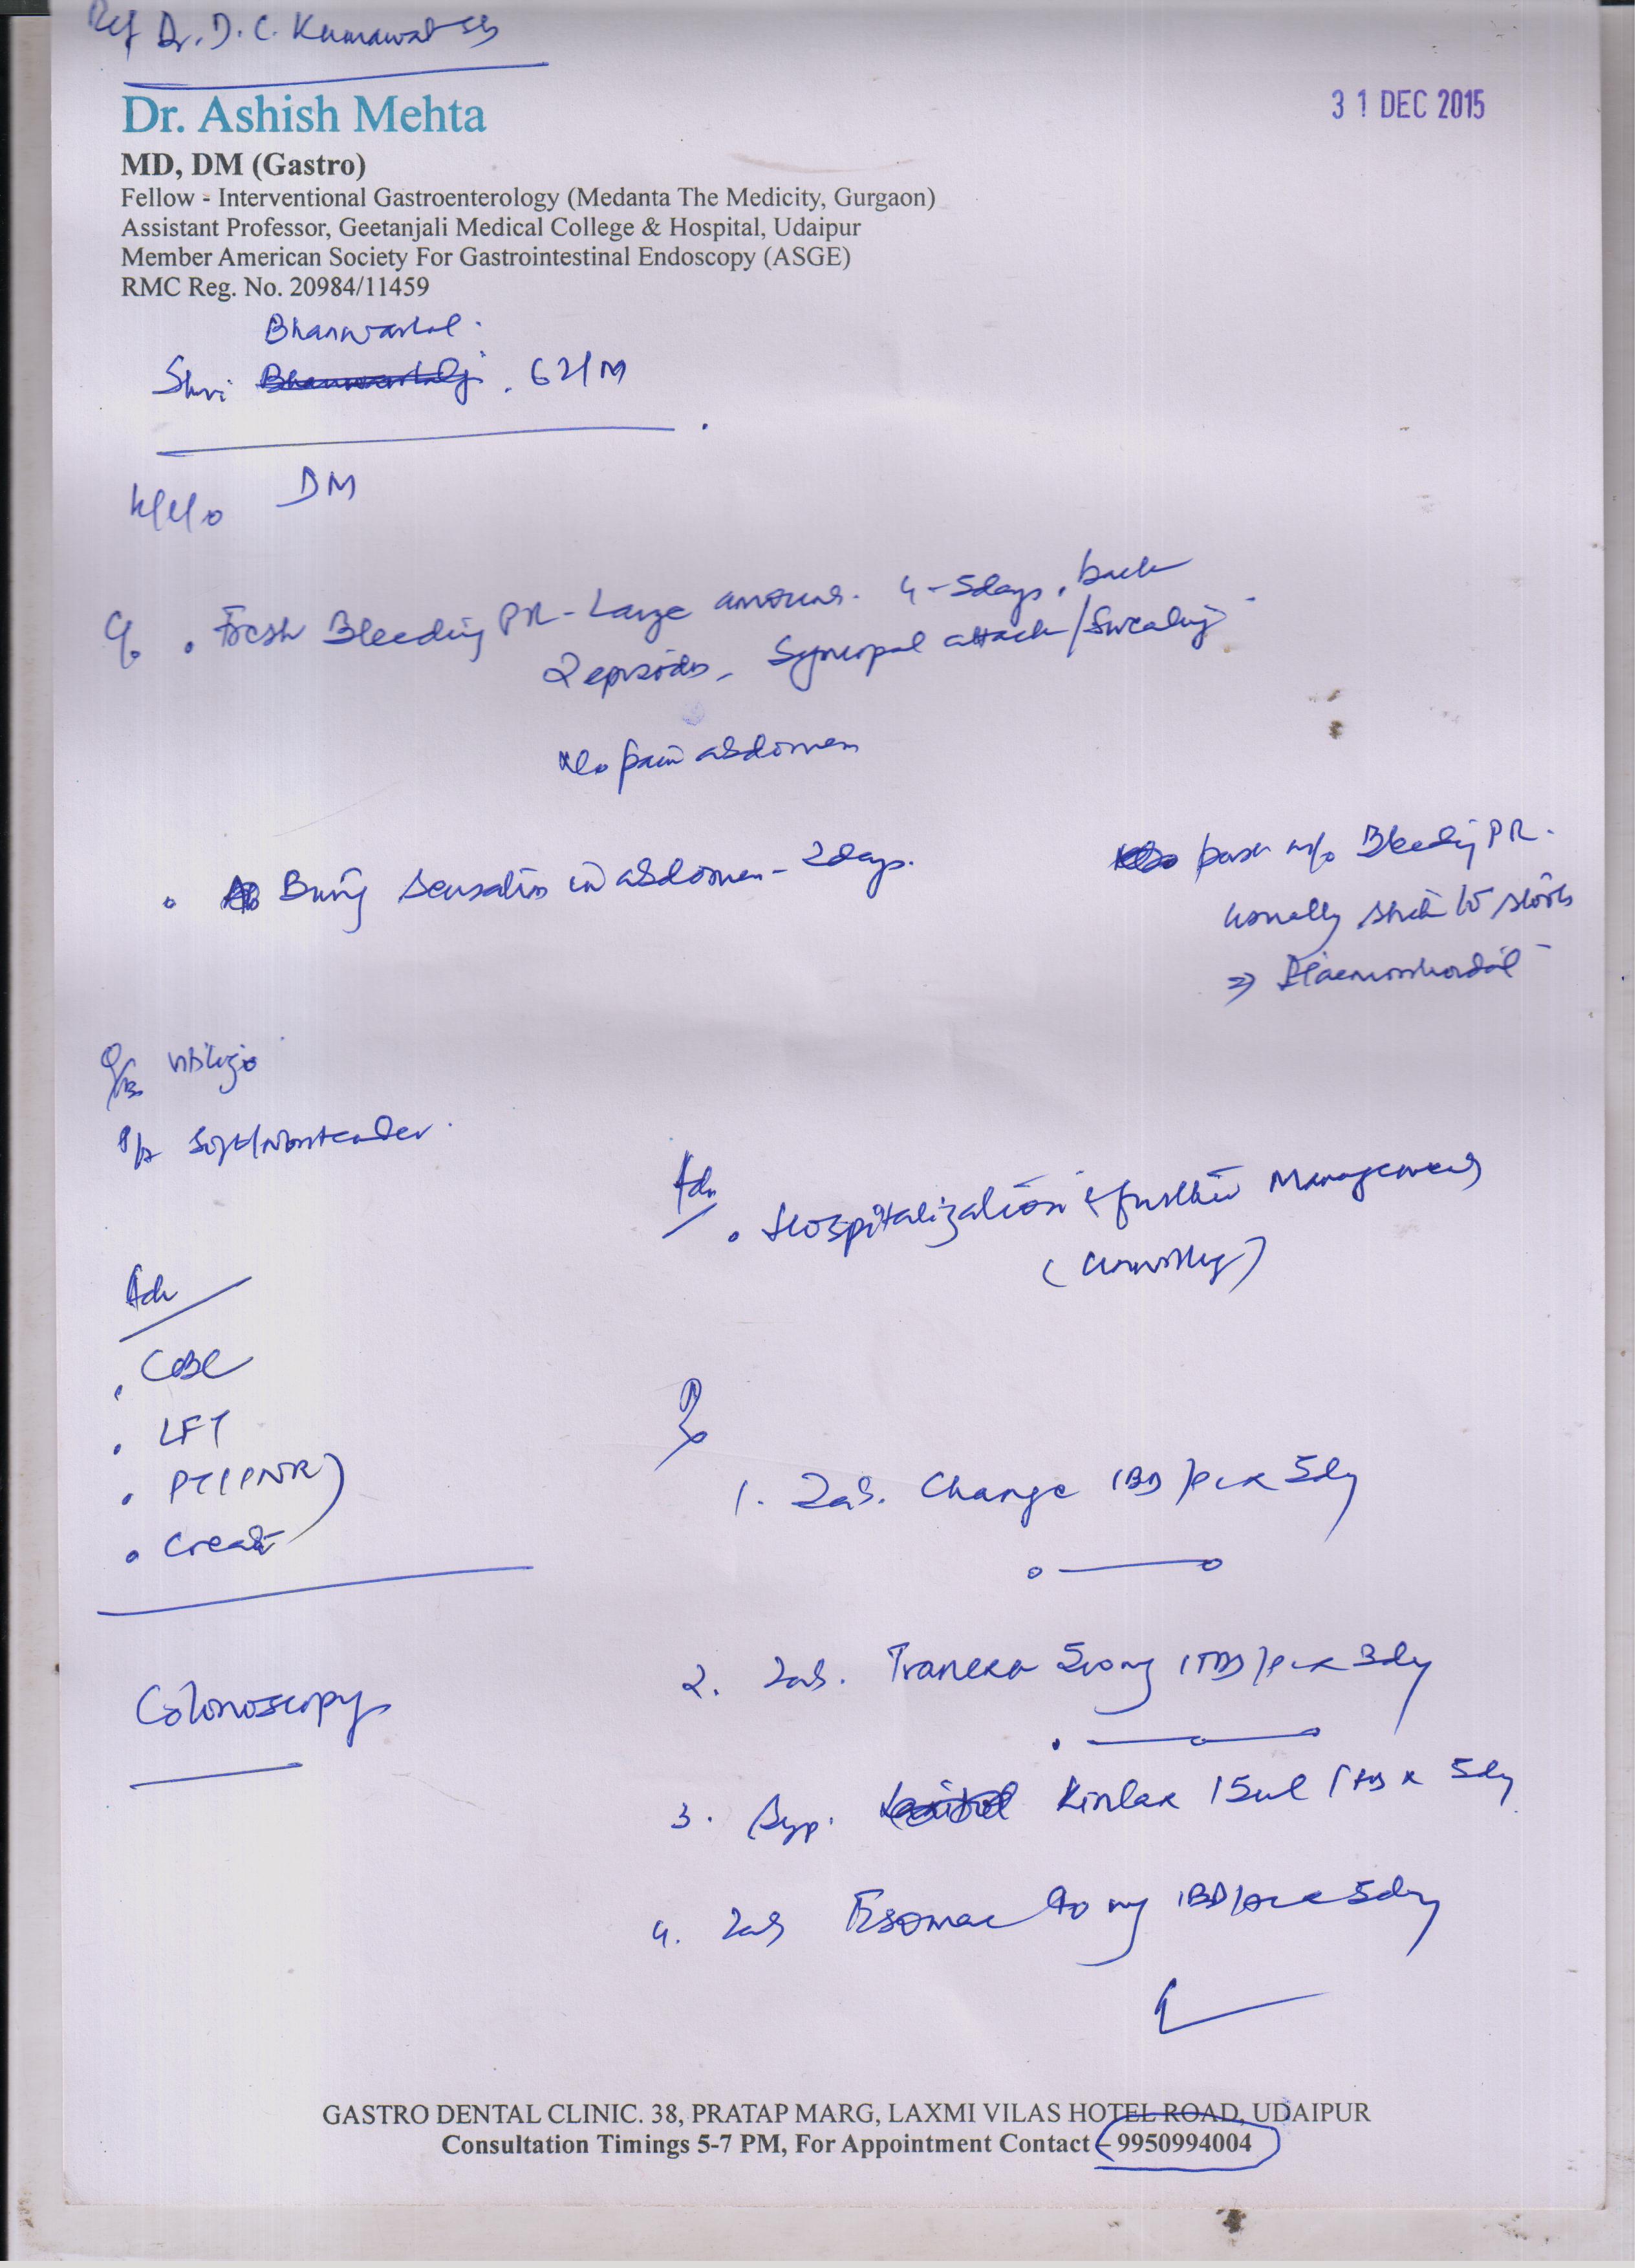 Ref Dr. D. C. Kumawat
Dr. Ashish Mehta
31 DEC 2015
MD, DM (Gastro)
Fellow - Interventional Gastroenterology (Medanta The Medicity, Gurgaon)
Assistant Professor, Geetanjali Medical College & Hospital, Udaipur
Member American Society For Gastrointestinal Endoscopy (ASGE)
RMC Reg. No. 20984/11459
Bhanwarlal.
Shri 62/M
DM
C/o . Fresh Bleeding PR - Large amount. 4-5 days. back
2 episodes - Syncopal attack/Sweating
No pain abdomen
. Burng sensation in abdomen - 2 days.
past h/o Bleeding PR.
usually stools
⇒ Haemorrhoidal
vitiligo
P/A Soft/Nontender.
Adv
. Hospitalization & further Management
Adv
. CBC
. LFT
. PT (INR)
. Creat
Colonoscopy
Rx
1. Tab. Change 1 BD x 5dy
2. Tab. Tranexa 500mg 1 TDS x 3dy
3. Syp. 15ml x 5dy
4. Tab 40 mg 1 BD x 5dy
GASTRO DENTAL CLINIC. 38, PRATAP MARG, LAXMI VILAS HOTEL ROAD, UDAIPUR
Consultation Timings 5-7 PM, For Appointment Contact - 9950994004